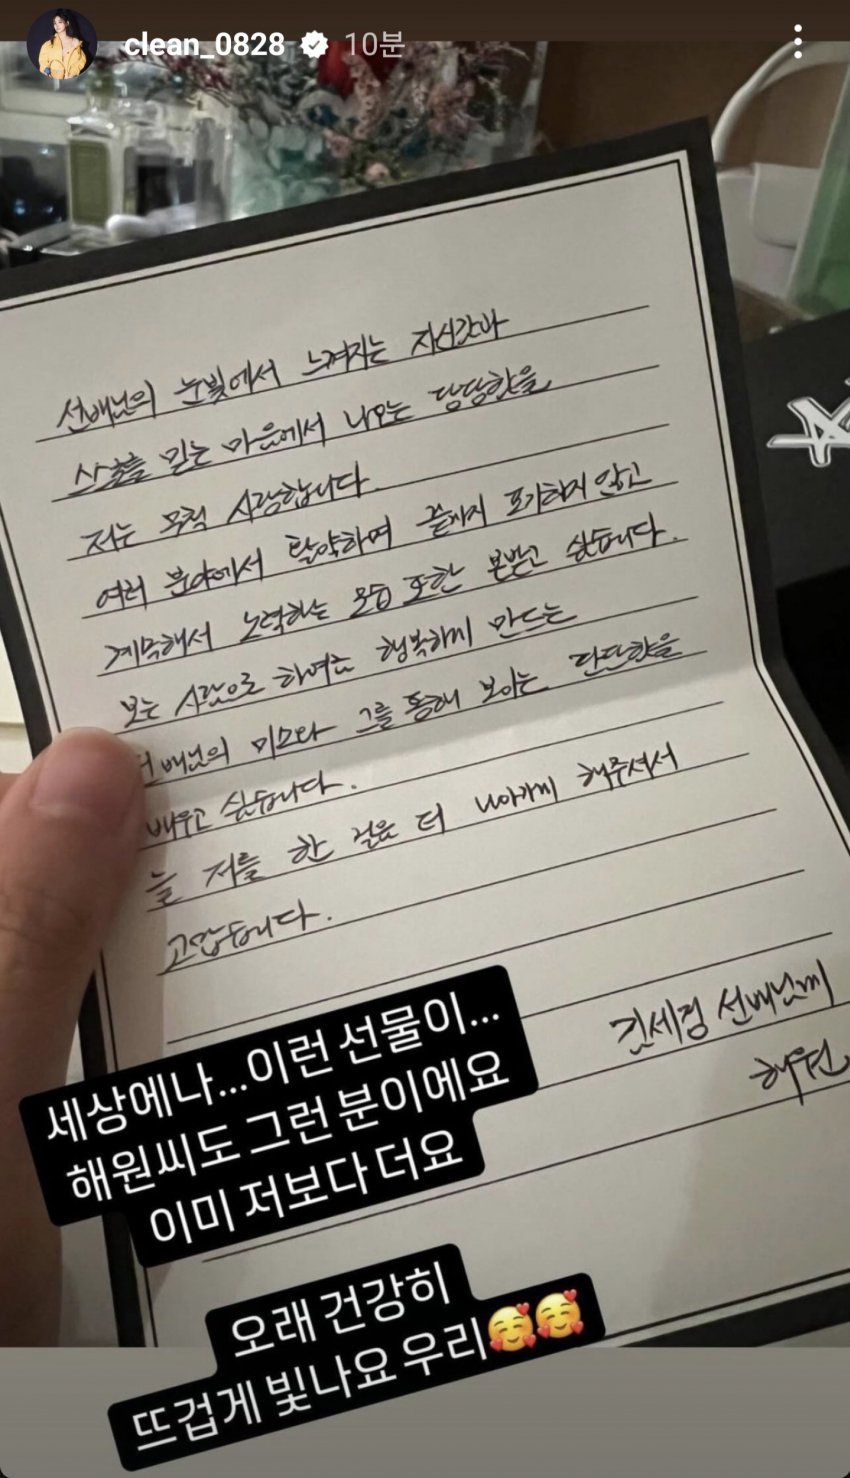 clean_0828 10분
선배님의 눈빛에서 느껴지는 자신감과
스스로를 믿는 마음에서 나오는 당당함을
저는 무척 사랑합니다.
여러 분야에서 활약하며 끝까지 포기하지 않고
계속해서 노력하는 모습 또한 본받고 싶습니다.
보는 사람으로 하여금 행복하게 만드는
선배님의 미소와 그를 통해 보이는 단단함을
배우고 싶습니다.
늘 저를 한 걸음 더 나아가게 해주셔서
고맙습니다.
김세정 선배님께
해원
세상에나...이런 선물이...
해원씨도 그런 분이에요
이미 저보다 더요
오래 건강히
뜨겁게 빛나요 우리🥰🥰